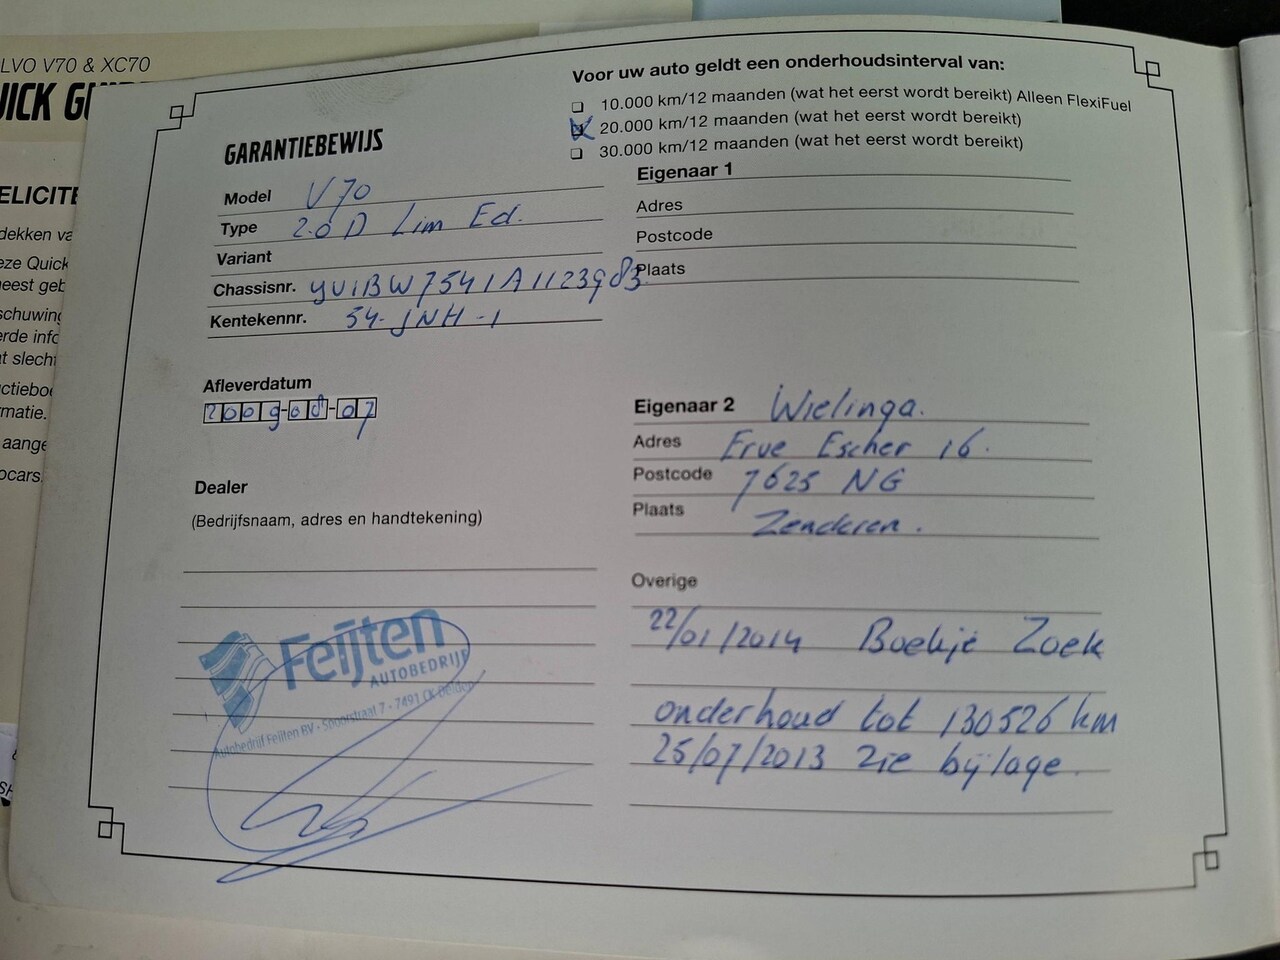 LVO V70 & XC70
UICK GU
ELICITE
dekken va
eze Quick
eest geb
schuwing
erde info
t slecht
ctieboe
matie.
aange
ocars.
Voor uw auto geldt een onderhoudsinterval van:
10.000 km/12 maanden (wat het eerst wordt bereikt) Alleen FlexiFuel
20.000 km/12 maanden (wat het eerst wordt bereikt)
30.000 km/12 maanden (wat het eerst wordt bereikt)
GARANTIEBEWIJS
Model V70
Type 2.0 D Lim Ed.
Variant
Chassisnr. YV1BW7541A1123983
Kentekennr. 54-JNH-1
Afleverdatum
2009-08-07
Dealer
(Bedrijfsnaam, adres en handtekening)
Feijten
AUTOBEDRIJF
Autobedrijf Feijten BV - Spoorstraat 7 - 7491 CK Delden
Eigenaar 1
Adres
Postcode
Plaats
Eigenaar 2 Wielinga.
Adres Erve Escher 16.
Postcode 7625 NG
Plaats Zenderen.
Overige
22/01/2014 Boekje Zoek
onderhoud tot 130526 km
25/07/2013 zie bijlage